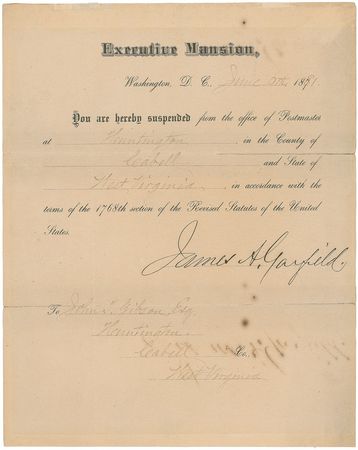 Executive Mansion,
Washington, D. C., June 1881.
You are hereby suspended from the office of Postmaster
at Huntington, in the County of
Cabell and State of
West Virginia, in accordance with the
terms of the 1768th section of the Revised Statutes of the United
States.
James A. Garfield.
To John Esq.
Huntington
Cabell Co.,
West Virginia